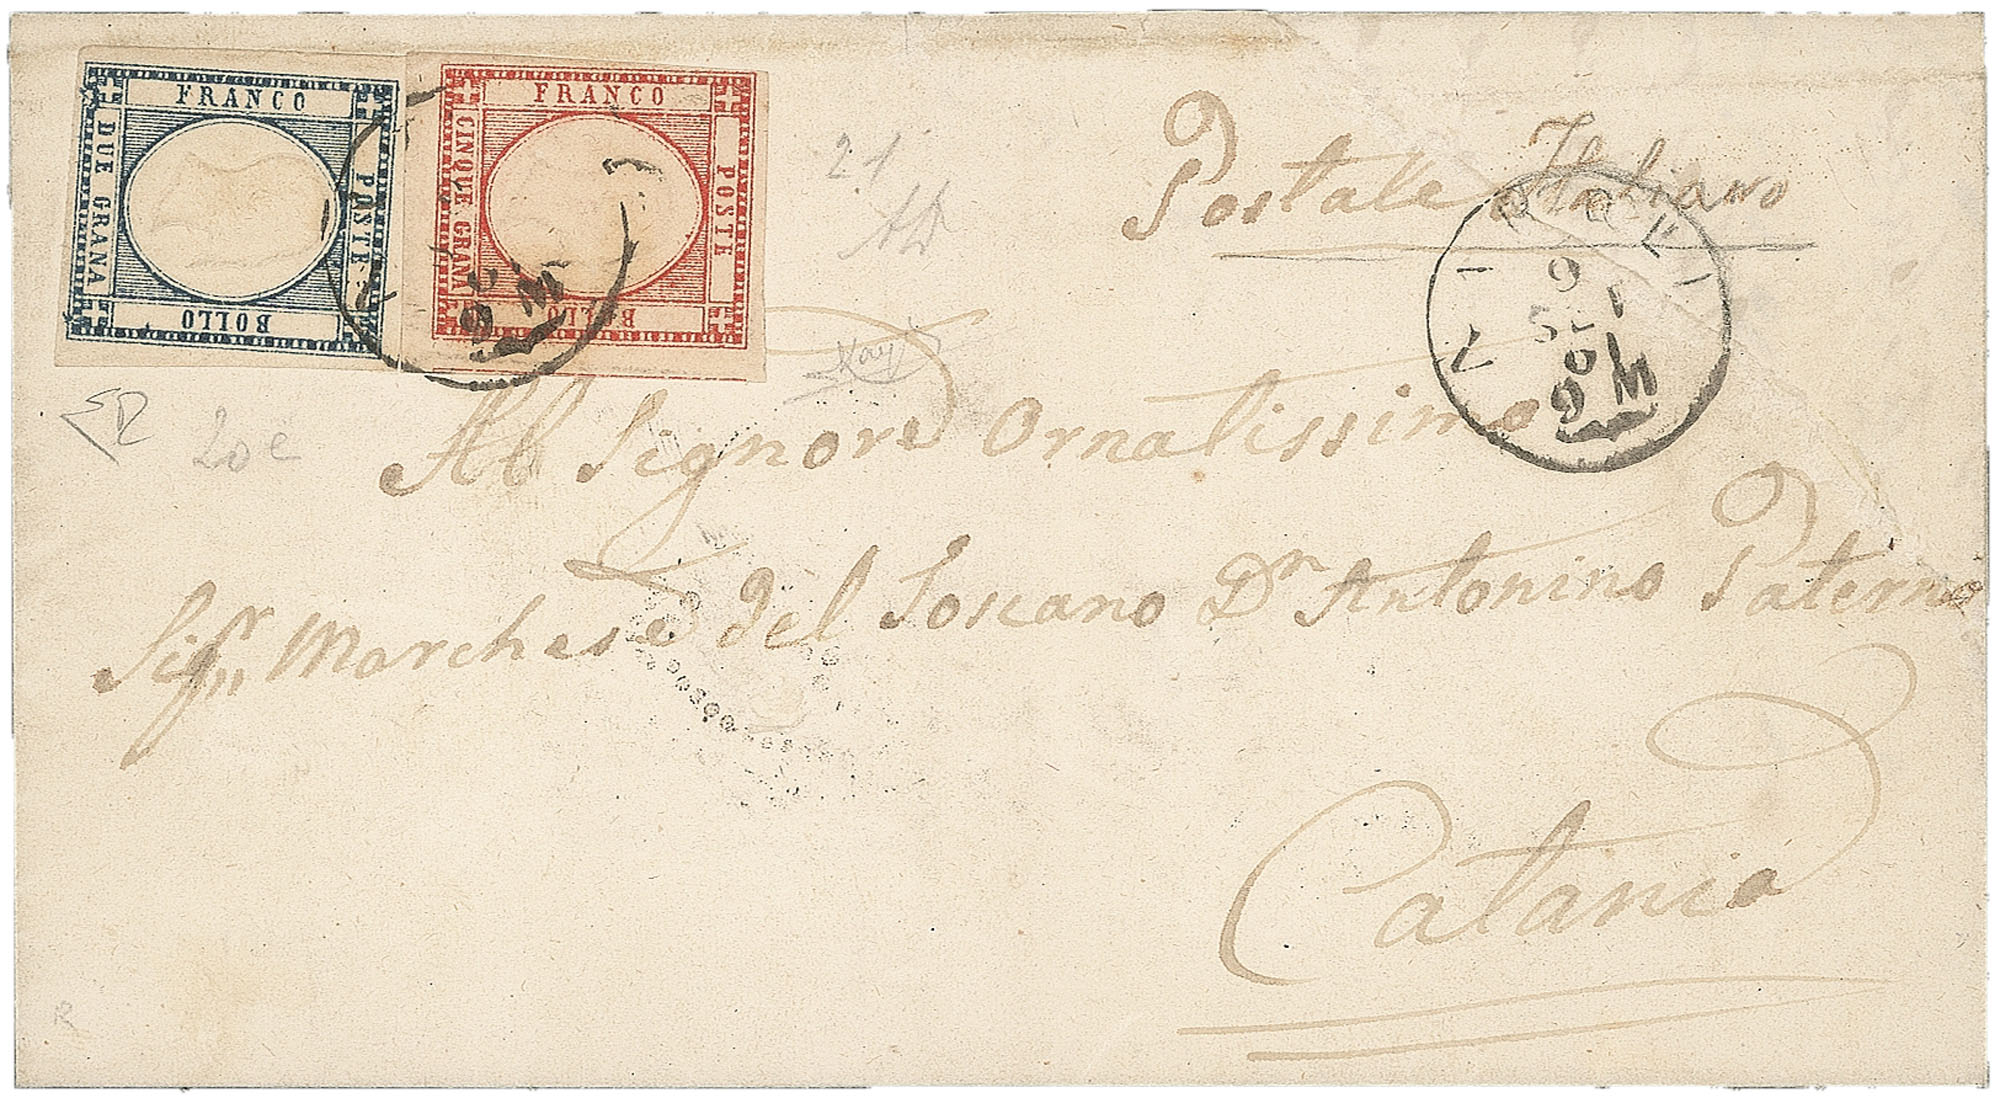 FRANCO
DUE GRANA
POSTE
BOLLO
FRANCO
CINQUE GRANA
POSTE
BOLLO
21
Postale Italiano
NAPOLI
9
9M
Al Signore Ornatissimo
20c
Sigr Marchese del Toscano Dn Antonino Paternò
Catania
R